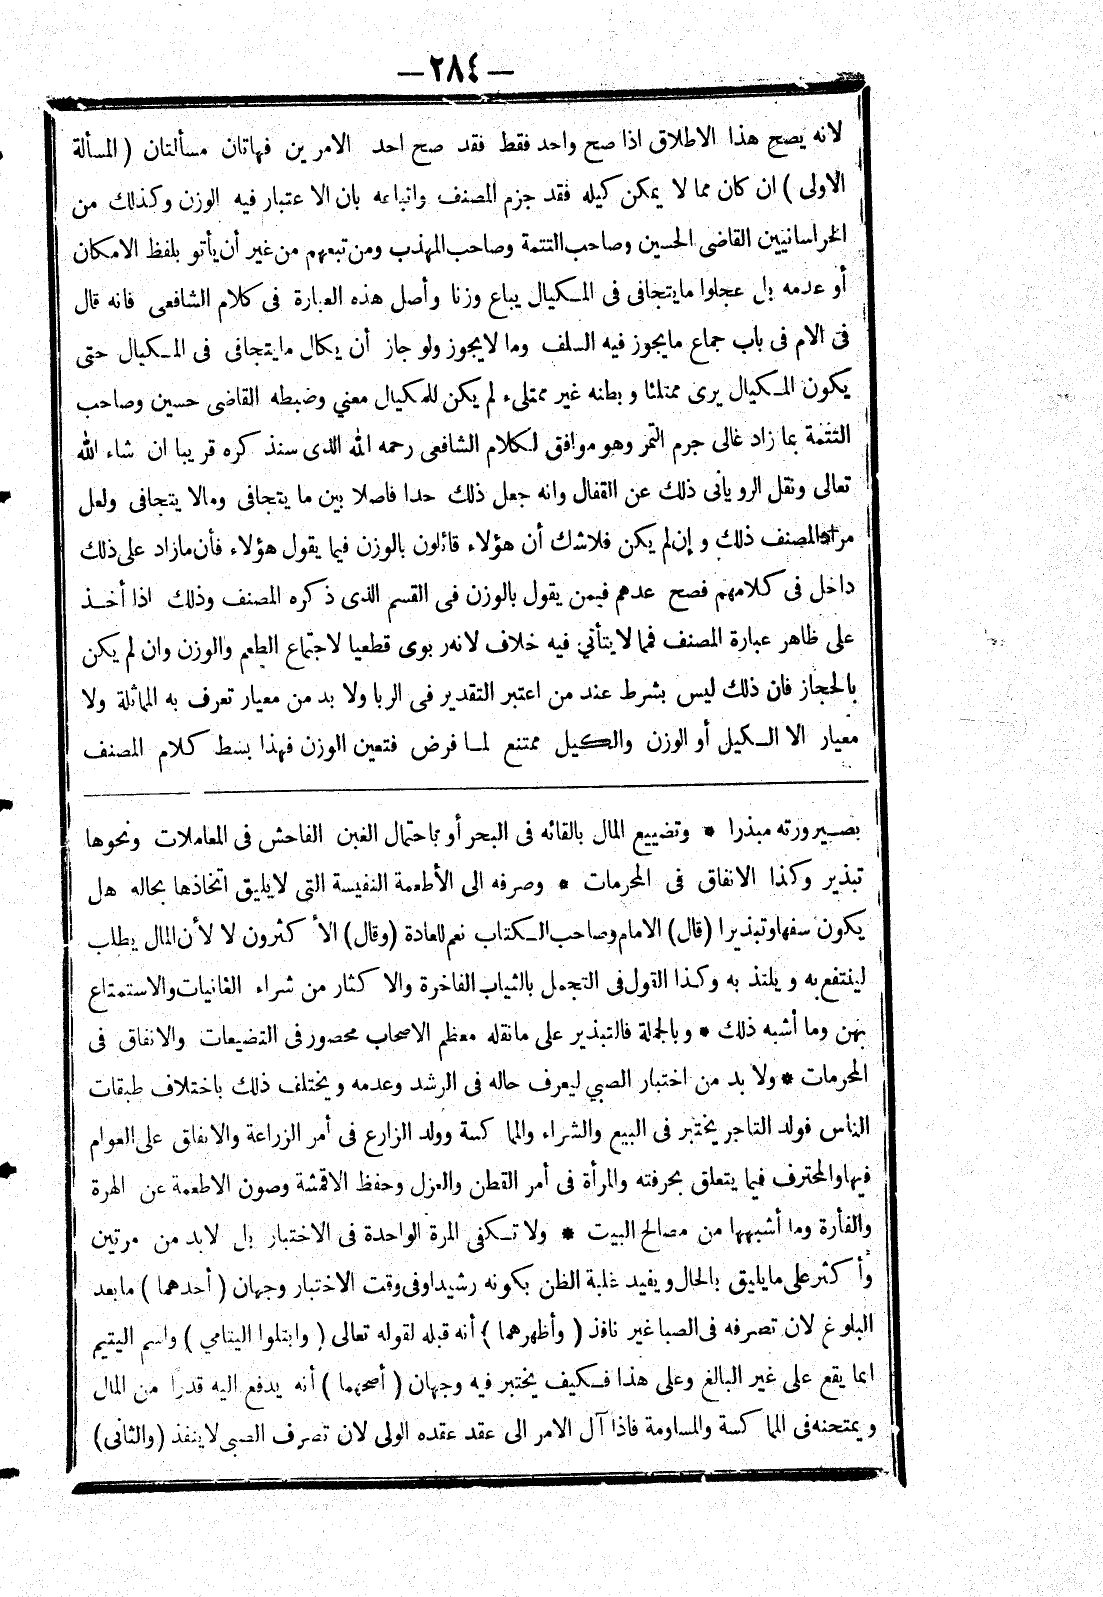 — ٢٨٤ —
لانه يصح هذا الاطلاق اذا صح واحد فقط فقد صح احد الامرين فهاتان مسألتان ( المسألة
الاولى ) ان كان مما لا يمكن كيله فقد جزم المصنف واتباعه بان الاعتبار فيه الوزن وكذلك من
الخراسانيين القاضى الحسين وصاحب التتمة وصاحب المهذب ومن تبعهم من غير أن يأتو بلفظ الامكان
أو عدمه بل عجلوا مايتجافى فى المكيال يباع وزنا وأصل هذه العبارة فى كلام الشافعى فانه قال
فى الام فى باب جماع مايجوز فيه السلف وما لايجوز ولو جاز أن يكال مايتجافى فى المكيال حتى
يكون المكيال يرى ممتلئا و بطنه غير ممتلىء لم يكن للمكيال معني وضبطه القاضى حسين وصاحب
التتمة بما زاد غالى جرم التمر وهو موافق لكلام الشافعى رحمه الله الذى سنذكره قريبا ان شاء الله
تعالى ونقل الرويانى ذلك عن القفال وانه جعل ذلك حدا فاصلا بين ما يتجافى ومالا يتجافى ولعل
مراد المصنف ذلك و إن لم يكن فلاشك أن هؤلاء قائلون بالوزن فيما يقول هؤلاء فأن مازاد على ذلك
داخل فى كلامهم فصح عدهم فيمن يقول بالوزن فى القسم الذى ذكره المصنف وذلك اذا أخذ
على ظاهر عبارة المصنف فمما لايتأتي فيه خلاف لانه ربوى قطعيا لاجتماع الطعم والوزن وان لم يكن
بالحجاز فان ذلك ليس بشرط عند من اعتبر التقدير فى الربا ولا بد من معيار تعرف به المماثلة ولا
معيار الا الكيل أو الوزن والكيل ممتنع لما فرض فتعين الوزن فهذا بسط كلام المصنف
بصيرورته مبذرا * وتضييع المال بالقائه فى البحر أو باحتمال الغبن الفاحش فى المعاملات ونحوها
تبذير وكذا الانفاق فى المحرمات * وصرفه الى الأطعمة النفيسة التى لايليق اتخاذها بحاله هل
يكون سفها وتبذيرا (قال) الامام وصاحب الكتاب نعم للعادة (وقال) الأكثرون لا لأن المال يطلب
لينتفع به و يلتذ به وكذا القول فى التجمل بالثياب الفاخرة والاكثار من شراء الغانيات والاستمتاع
بهن وما أشبه ذلك * وبالجملة فالتبذير على مانقله معظم الاصحاب محصور فى التضيعات والانفاق فى
المحرمات * ولا بد من اختبار الصبي ليعرف حاله فى الرشد وعدمه ويختلف ذلك باختلاف طبقات
الناس فولد التاجر يختبر فى البيع والشراء والمماكسة وولد الزارع فى أمر الزراعة والانفاق على القوام
فيها والمحترف فيما يتعلق بحرفته والمرأة فى أمر القطن والغزل وحفظ الاقمشة وصون الاطعمة عن الهرة
والفأرة وما أشبهها من مصالح البيت * ولا تكفى المرة الواحدة فى الاختبار بل لابد من مرتين
وأكثر على مايليق بالحال ويفيد غلبة الظن بكونه رشيدا وفى وقت الاختبار وجهان ( أحدهما ) مابعد
البلوغ لان تصرفه فى الصبا غير نافذ ( وأظهرهما ) أنه قبله لقوله تعالى ( وابتلوا اليتامي ) واسم اليتيم
انما يقع على غير البالغ وعلى هذا فكيف يختبر فيه وجهان ( أصحهما ) أنه يدفع اليه قدرا من المال
ويمتحنه فى المماكسة والمساومة فاذا آل الامر الى عقد عقده الولى لان تصرف الصبى لاينفذ (والثانى)